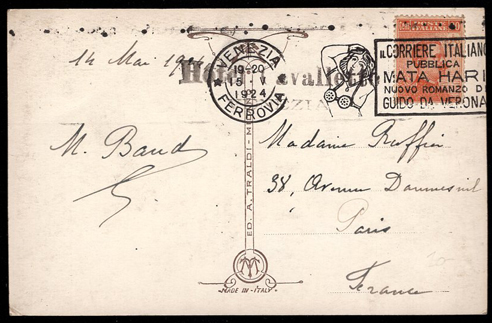 14 Mai 1924
Hotel Cavalletto
VENEZIA
VENEZIA
19-20
15·IV
1924
FERROVIA
IL CORRIERE ITALIANO
PUBBLICA
MATA HARI
NUOVO ROMANZO DI
GUIDO DA VERONA
M. Baud
Madame Ruffier
38, Avenue Daumesnil
Paris
France
ED. A. TRALDI - M
MADE IN ITALY